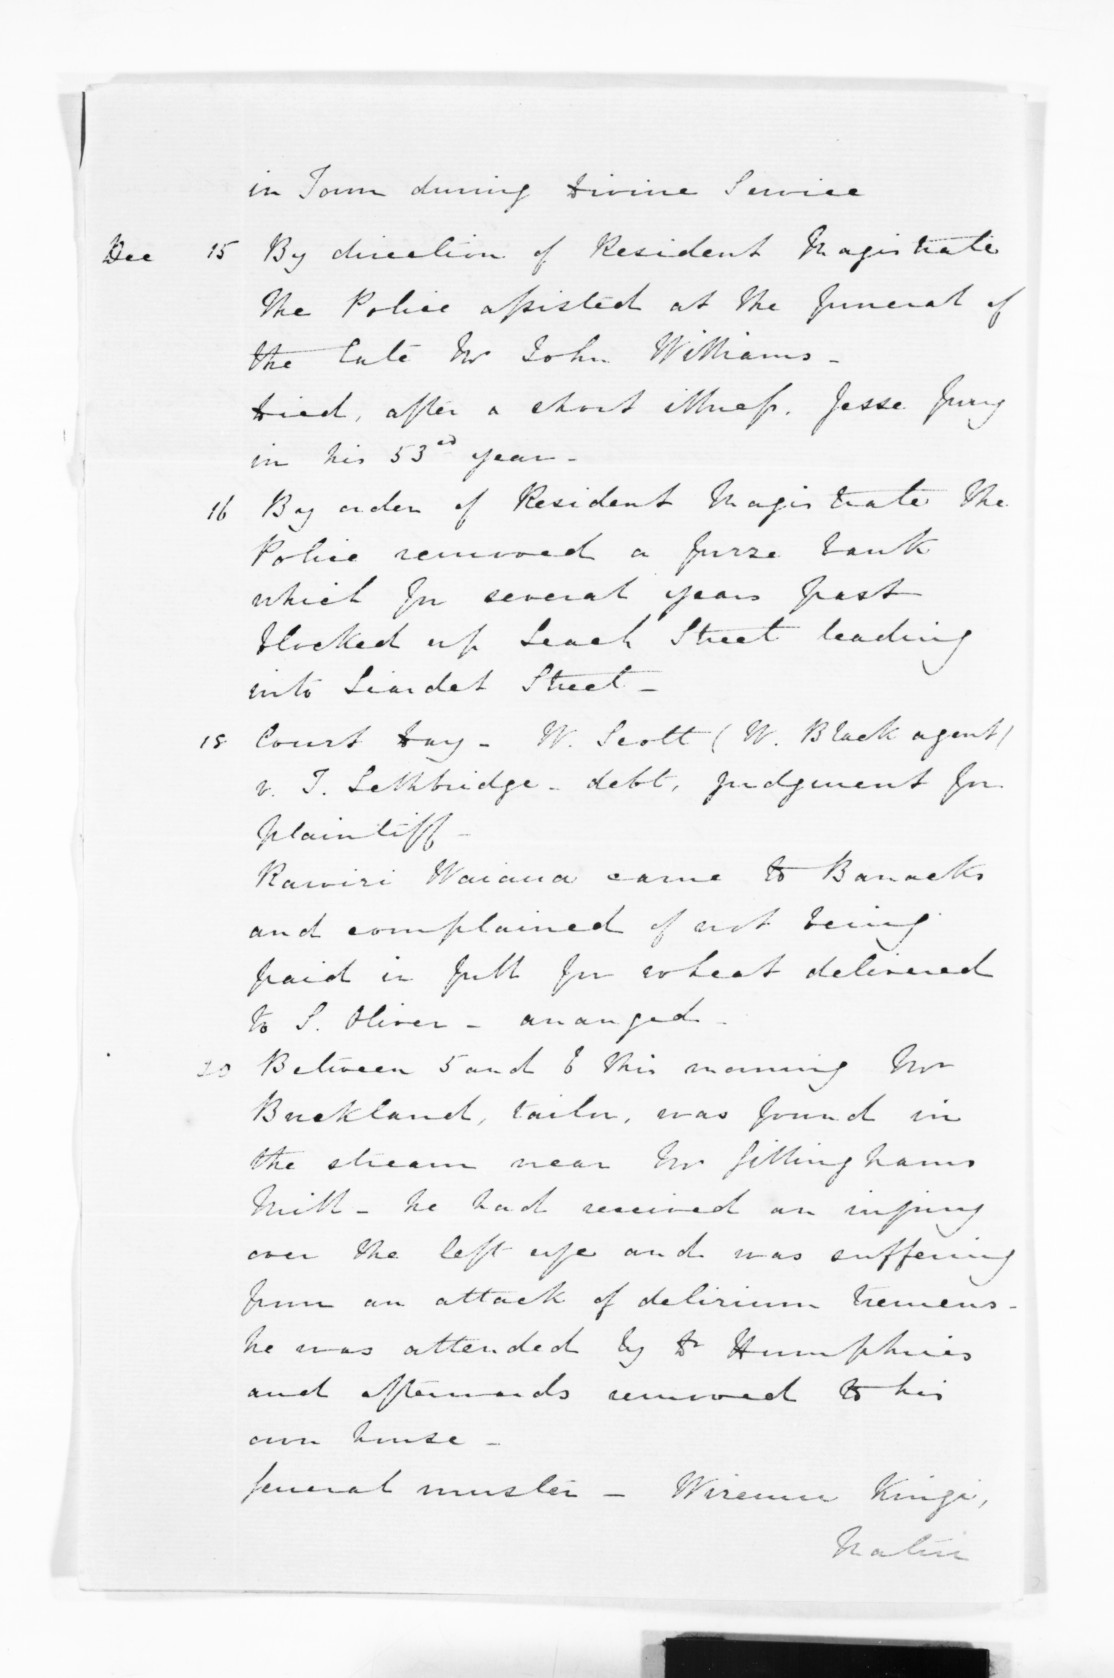 in Town during Divine Service
Dec 15 By direction of Resident Magistrate
the Police assisted at the funeral of
the late Mr John Williams -
Died, after a short illness, Jesse Jury
in his 53rd year -
16 By order of Resident Magistrate the
Police removed a furze bank
which for several years past
blocked up Leach Street leading
into Liardet Street -
18 Court Day - W. Scott ( W. Black agent )
v. T. Lethbridge - debt, judgment for
plaintiff -
Rawiri Waiaua came to Barracks
and complained of not being
paid in full for wheat delivered
to S. Oliver - arranged -
20 Between 5 and 6 this morning Mr
Buckland, tailor, was found in
the stream near Mr Gillinghams
Mill - he had received an injury
over the left eye and was suffering
from an attack of delirium tremens -
he was attended by Dr Humphries
and afterwards removed to his
own house -
General muster - Wiremu Kingi,
Native